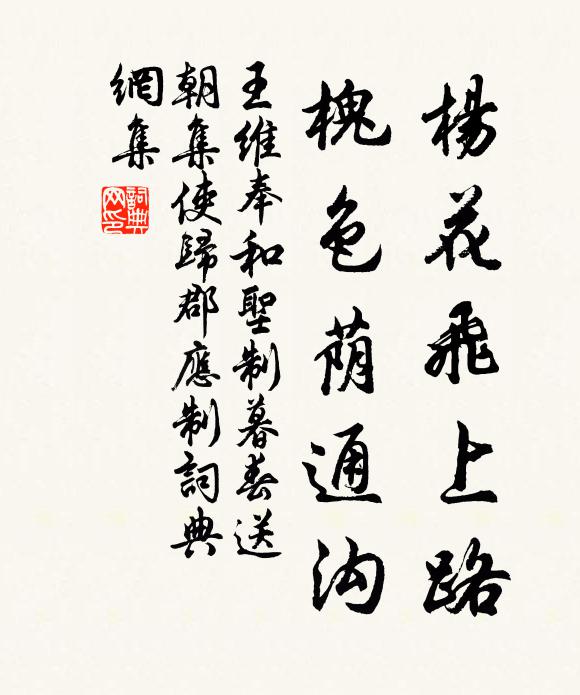 楊花飛上路
槐色蔭通沟
王維奉和聖制暮春送
朝集使歸郡應制詞典
網集
詞典
网印